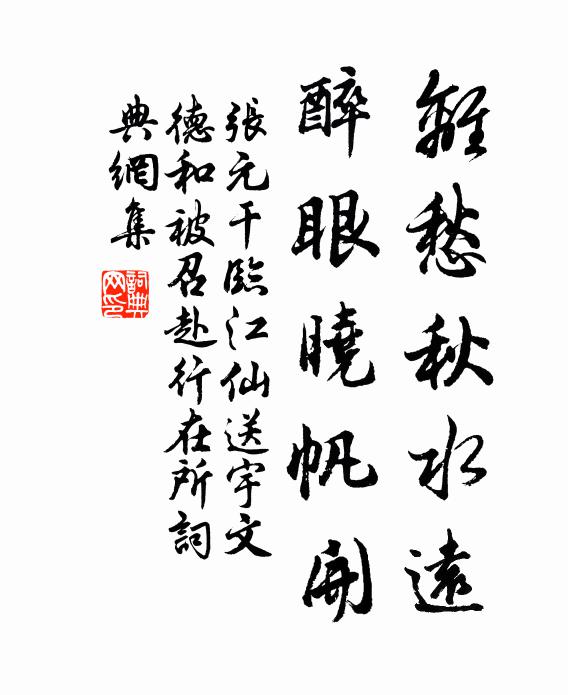 離愁秋水遠
醉眼曉帆開
張元干臨江仙送宇文
德和被召赴行在所詞
典網集
詞典网印